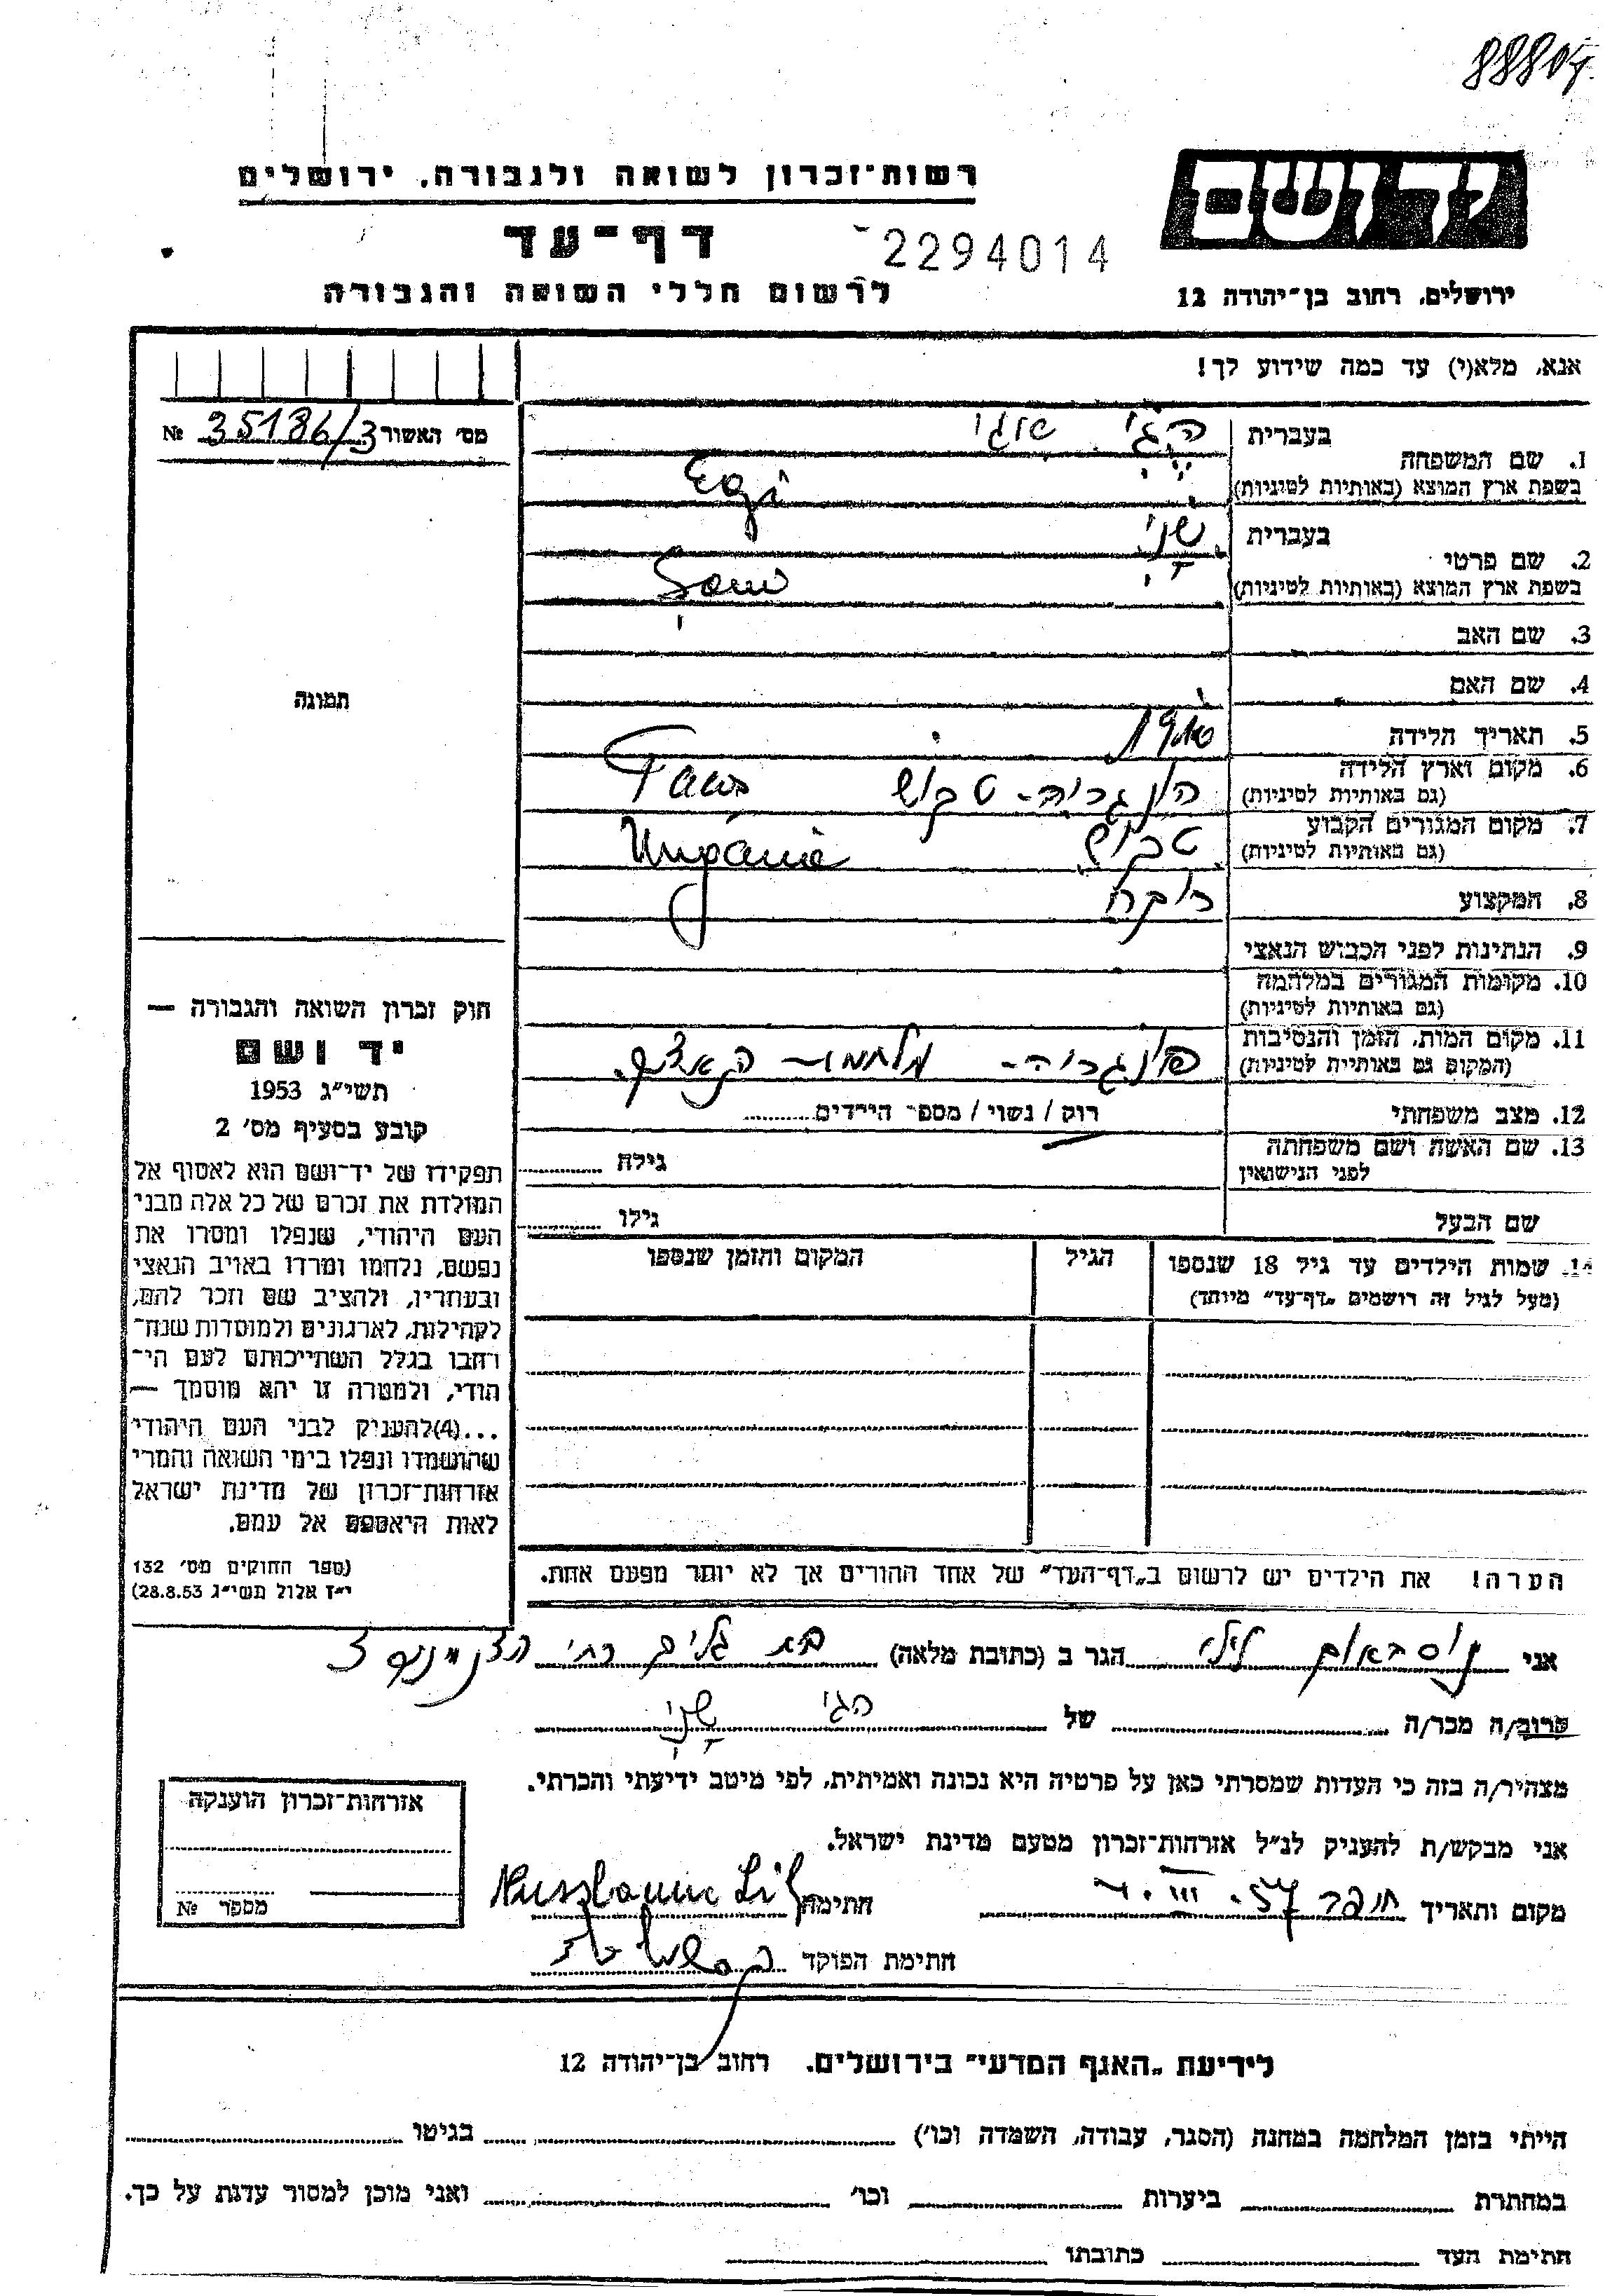 רשות־זכרון לשואה ולגבורה, ירושלים
יד ושם
דף־עד
2294014
לרשום חללי השואה והגבורה
ירושלים, רחוב בן־יהודה 12
אנא, מלא(י) עד כמה שידוע לך!
מס׳ האשור № 35186/3
בעברית
1. שם המשפחה
בשפת ארץ המוצא (באותיות לטיניות) Egi
בעברית שני
2. שם פרטי
בשפת ארץ המוצא (באותיות לטיניות)
3. שם האב
4. שם האם
תמונה
5. תאריך הלידה
6. מקום וארץ הלידה
(גם באותיות לטיניות) הונגריה -
7. מקום המגורים הקבוע
(גם באותיות לטיניות)
8. המקצוע רוקח
9. הנתינות לפני הכבוש הנאצי
10. מקומות המגורים במלחמה
(גם באותיות לטיניות)
11. מקום המות, הזמן והנסיבות
(המקום גם באותיות לטיניות) הונגריה -
12. מצב משפחתי רוק / נשוי / מספר הילדים
13. שם האשה ושם משפחתה
לפני הנישואין גילה
שם הבעל גילו
14. שמות הילדים עד גיל 18 שנספו הגיל המקום והזמן שנספו
(מעל לגיל זה רושמים „דף־עד״ מיוחד)
חוק זכרון השואה והגבורה —
יד ושם
תשי״ג 1953
קובע בסעיף מס׳ 2
תפקידו של יד־ושם הוא לאסוף אל
המולדת את זכרם של כל אלה מבני
העם היהודי, שנפלו ומסרו את
נפשם, נלחמו ומרדו באויב הנאצי
ובעוזריו, ולהציב שם וזכר להם,
לקהילות, לארגונים ולמוסדות שנח־
רבו בגלל השתייכותם לעם הי־
הודי, ולמטרה זו יהא מוסמך —
...(4) להעניק לבני העם היהודי
שהושמדו ונפלו בימי השואה והמרי
אזרחות־זכרון של מדינת ישראל
לאות היאספם אל עמם.
(ספר החוקים מס׳ 132
י״ז אלול תשי״ג 28.8.53)
הערה! את הילדים יש לרשום ב„דף־העד״ של אחד ההורים אך לא יותר מפעם אחת.
אני נוסבאום לילי הגר ב (כתובת מלאה) בת גלים רח׳
קרוב/ה מכר/ה של הגי שני
מצהיר/ה בזה כי העדות שמסרתי כאן על פרטיה היא נכונה ואמיתית, לפי מיטב ידיעתי והכרתי.
אני מבקש/ת להעניק לנ״ל אזרחות־זכרון מטעם מדינת ישראל.
מקום ותאריך חיפה חתימה Nussbaum Lili
חתימת הפוקד
אזרחות־זכרון הוענקה
מספר №
לידיעת „האגף המדעי״ בירושלים. רחוב בן־יהודה 12
הייתי בזמן המלחמה במחנה (הסגר, עבודה, השמדה וכו׳) בגיטו
במחתרת ביערות וכו׳ ואני מוכן למסור עדות על כך.
חתימת העד כתובתו